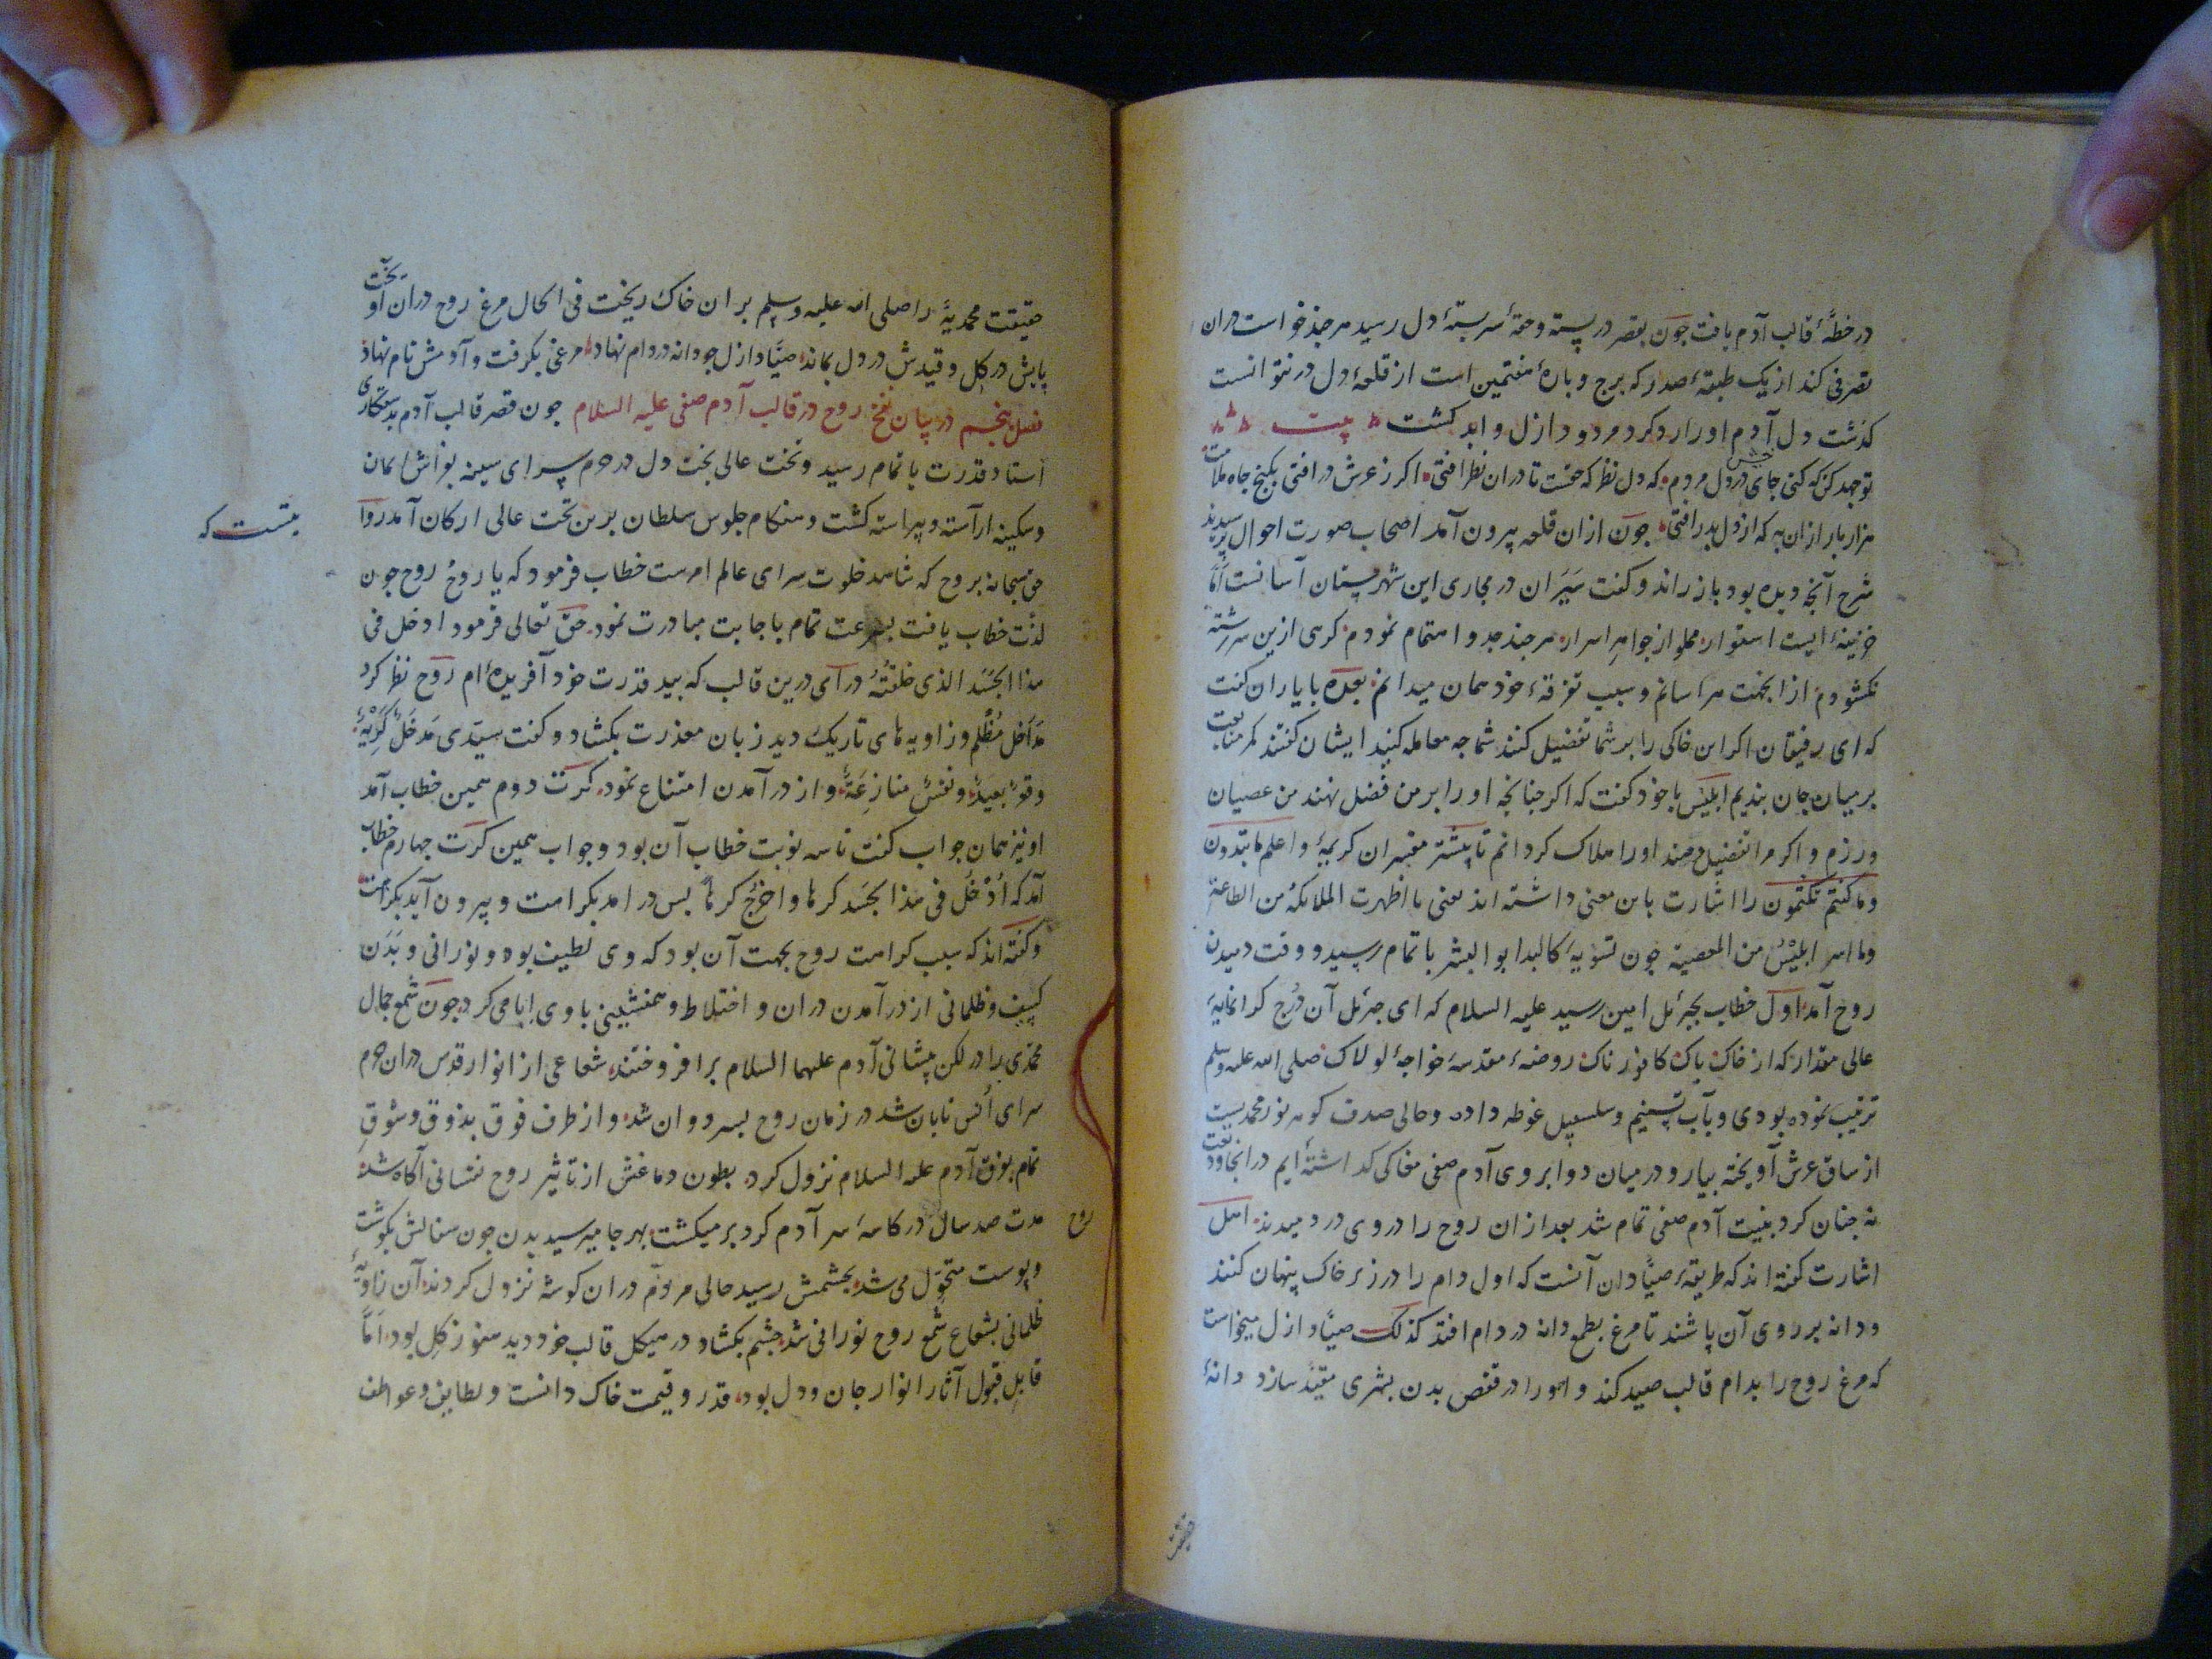 در خطّهٔ قالب آدم یافت جون بقصر در بسته و حقهٔ سربستهٔ دل رسید هرجند خواست دران
تصرفی کند از یک طبقهٔ صدر که برج و بارهٔ هفتمین است از قلعهٔ دل درنتوانست
کذشت دل آدم او را رد کرد مردود ازل و ابد کشت بیت
تو جهد کن که کنی جای در دل مردم که دل نظرکه حقست تا دران نظر افتی اکر ز عرش در افتی بکنج جاه ملامت
هزار بار ازان به که از دل بدر افتی جون ازان قلعه بیرون آمد اصحاب صورت احوال برسیدند
شرح آنجه دیده بود باز راند و کفت سَیَران در مجاری این شهرستان آسانست امّا
خزینهٔ ایست استوار مملو از جواهر اسرار هرجند جد و اهتمام نمودم کرهی ازین سررشته
نکشودم ازانجهت هراسانم و سبب تفرقهٔ خود همان میدانم بعده با یاران کفت
که ای رفیقان اکر این خاکی را بر شما تفضیل کنند شما جه معامله کنید ایشان کفتند کمر متابعت
بر میان جان بندیم ابلیس با خود کفت که اکر جنانجه او را بر من فضل نهند من عصیان
ورزم و اکر مرا تفضیل دهند او را هلاک کردانم تا بیشتر مفسران کریمهٔ واعلم ما تبدون
وما کنتم تکتمون را اشارت باین معنی داشته اند یعنی ما اظهرت الملایکة من الطاعة
وما اسر ابلیس من المعصیة جون تسویهٔ کالبد ابو البشر باتمام رسید و وقت دمیدن
روح آمد اول خطاب بجبرئیل امین رسید علیه السلام که ای جبرئیل آن دُرج کرانمایهٔ
عالی مقدار که از خاک باک کافور ناک روضهٔ مقدسهٔ خواجهٔ لولاک صلی الله علیه وسلم
ترتیب نموده بودی و بآب تسنیم و سلسبیل غوطه داده و حالی صدف کوهر نور محمدیست
از ساق عرش آویخته بیار و در میان دو ابروی آدم صفی مغاکی کذاشته ایم در انجا ودیعت
نه جنان کرد بنیت آدم صفی تمام شد بعد ازان روح را در وی در دمیدند اهل
اشارت کفته اند که طریقهٔ صیّادان آنست که اول دام را در زیر خاک پنهان کنند
و دانه بر روی آن پاشند تا مرغ بطمع دانه در دام افتد کذلک صیّاد ازل میخواست
که مرغ روح را بدام قالب صید کند و او را در قفص بدن بشری مقیّد سازد دانهٔ
حقیقت
حقیقت محمدیهٔ را صلی الله علیه وسلم بران خاک ریخت فی الحال مرغ روح دران آویخت
پایش در کل و قیدش در دل بماند صیّاد ازل جو دانه در دام نهاد مرغی بکرفت و آدمش نام نهاد
فصل پنجم در بیان نفخ روح در قالب آدم صفی علیه السلام جون قصر قالب آدم بدستکاری
استاد قدرت باتمام رسید و تخت عالی بخت دل در حرم سرای سینه بفراش ایمان
و سکینه آراسته و پیراسته کشت و هنکام جلوس سلطان برین تخت عالی ارکان آمد روا
نیست که
حق سبحانه بروح که شاهد خلوت سرای عالم امرست خطاب فرمود که یا روحُ روح جون
لذّت خطاب یافت بسرعت تمام باجابت مبادرت نمود حق تعالی فرمود ادخل فی
هذا الجسد الذی خلقته در آی درین قالب که بید قدرت خود آفریده ام روح نظر کرد
مداخل مظلم و زاویه های تاریک دید زبان معذرت بکشاد و کفت سیّدی مَدخلٌ کَریهٌ
وقعرٌ بعیدٌ ونفسٌ منازعةٌ و از درآمدن امتناع نمود کرّت دوم همین خطاب آمد
او نیز همان جواب کفت تا سه نوبت خطاب آن بود و جواب همین کرّت جهارم خطاب
آمد که اُدخُل فی هذا الجسد کرهًا واخرُج کرهًا بس در آمد بکراهت و بیرون آید بکراهت
و کفته اند که سبب کراهت روح بجهت آن بود که وی لطیف بود و نورانی و بَدَن
کثیف و ظلمانی از درآمدن دران و اختلاط و همنشینی با وی ابا می کرد جون شمع جمال
محمّدی را در لکن پیشانی آدم علیهما السلام بر افروختند شعاعی از انوار قدس دران حرم
سرای اُنس تابان شد در زمان روح بسر دوان شد و از طرف فوق بذوق و شوق
تمام بفرق آدم علیه السلام نزول کرد بطون دماغش از تأثیر روح نفسانی آکاه شد
روح
مدت صد سال در کاسهٔ سر آدم کرد بر میکشت بهر جا میرسید بدن جون سفالش بکوشت
و پوست متحوّل می شد بجشمش رسید حالی مردم دران کوشه نزول کردند آن زاویهٔ
ظلمانی بشعاع شمع روح نورانی شد جشم بکشاد در هیکل قالب خود دید هنوز کِل بود امّا
قابل قبول آثار انوار جان و دل بود قدر و قیمت خاک دانست و لطایف و عواطف